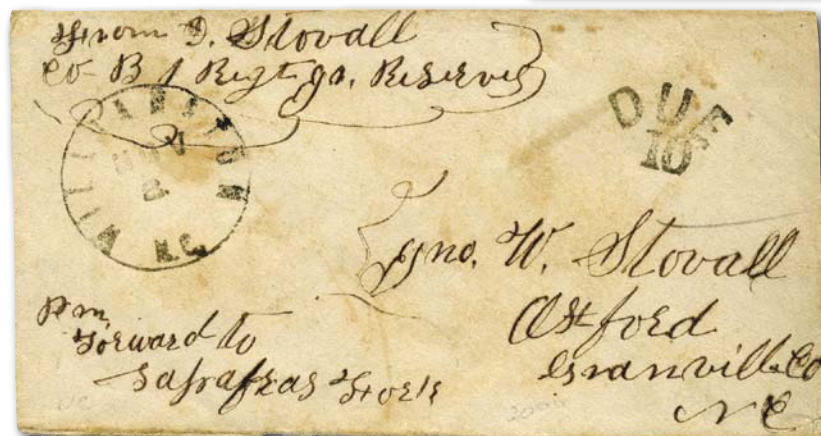 From D. Stovall
Co B 1 Regt ga. Reserves
WILLIAMSTON
NOV
N.C.
DUE
10
Jno. W. Stovall
Oxford
Granville Co
NC
P m
Forward to
Sassafras Fork